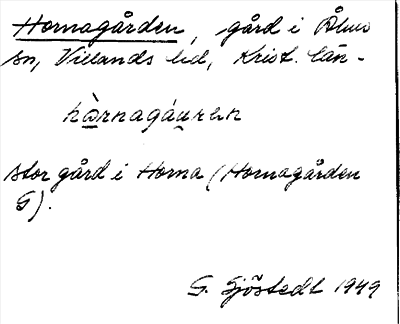 Hornagården, gård i Åhus
sn, Villands hd, Krist. län.
hòrnagáu̯ren
stor gård i Horna (Hornagården
G).
G. Sjöstedt 1949